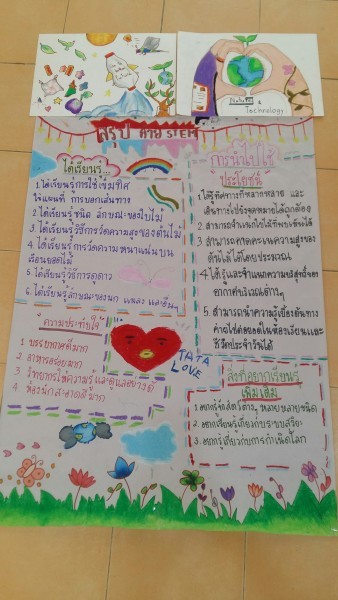 Nature &
Technology
สรุป ค่าย STEM
ได้เรียนรู้...
1. ได้เรียนรู้การใช้เข็มทิศ
ใช้แผนที่ การบอกเส้นทาง
2. ได้เรียนรู้ชนิด ลักษณะของใบไม้
3. ได้เรียนรู้วิธีการวัดความสูงของต้นไม้
4. ได้เรียนรู้การวัดความหนาแน่นบน
เรือนยอดไม้
5. ได้เรียนรู้วิธีการดูดาว
6. ได้เรียนรู้ลักษณะของนก แมลง และอื่นๆ
ความประทับใจ
1. บรรยากาศดีมาก
2. อาหารอร่อยมาก
3. วิทยากรให้ความรู้และดูแลอย่างดี
4. ห้องพักสะอาดดีมาก
TATA
LOVE
การนำไปใช้
ประโยชน์
1. ได้รู้ทิศทางที่หลากหลาย และ
เดินทางไปยังจุดหมายได้ถูกต้อง
2. สามารถจำแนกใบไม้ที่พบเห็นได้
3. สามารถคาดคะเนความสูงของ
ต้นไม้ได้โดยประมาณ
4. ได้รู้และจำแนกความบริสุทธิ์ของ
อากาศบริเวณต่างๆ
5. สามารถนำความรู้เรื่องเส้นทาง
ค่ายไปต่อยอดในห้องเรียนและ
ชีวิตประจำวันได้
สิ่งที่อยากเรียนรู้
เพิ่มเติม
1. อยากรู้จักสัตว์ต่างๆ หลากหลายชนิด
2. อยากเรียนรู้เกี่ยวกับระบบสุริยะ
3. อยากรู้เกี่ยวกับการกำเนิดโลก